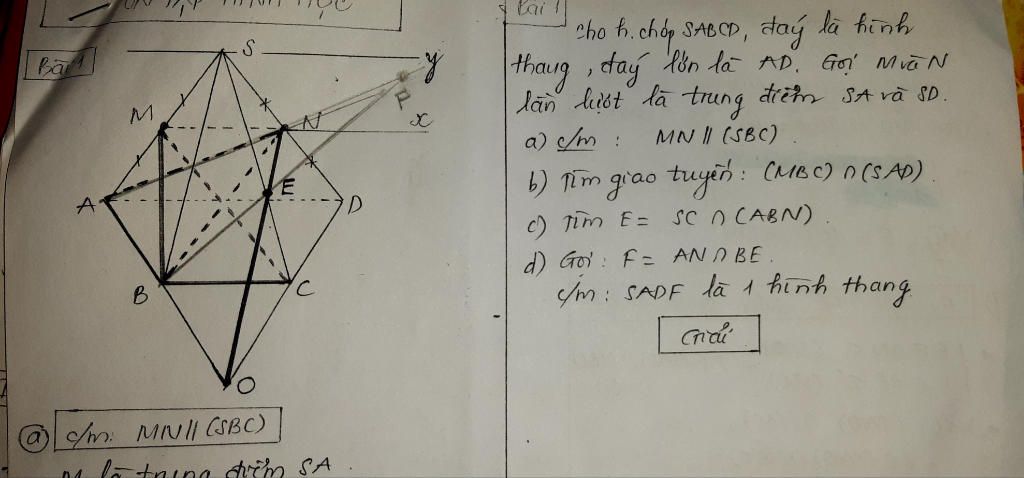 ÔN TẬP HÌNH HỌC
Bài 1
S
y
F
M
N
x
A
E
D
B
C
O
a) c/m: MN // (SBC)
M là trung điểm SA.
Bài 1
Cho h.chóp SABCD, đáy là hình
thang, đáy lớn là AD. Gọi M và N
lần lượt là trung điểm SA và SD.
a) c/m: MN // (SBC).
b) Tìm giao tuyến: (MBC) ∩ (SAD).
c) Tìm E = SC ∩ (ABN).
d) Gọi: F = AN ∩ BE.
c/m: SADF là 1 hình thang.
Giải